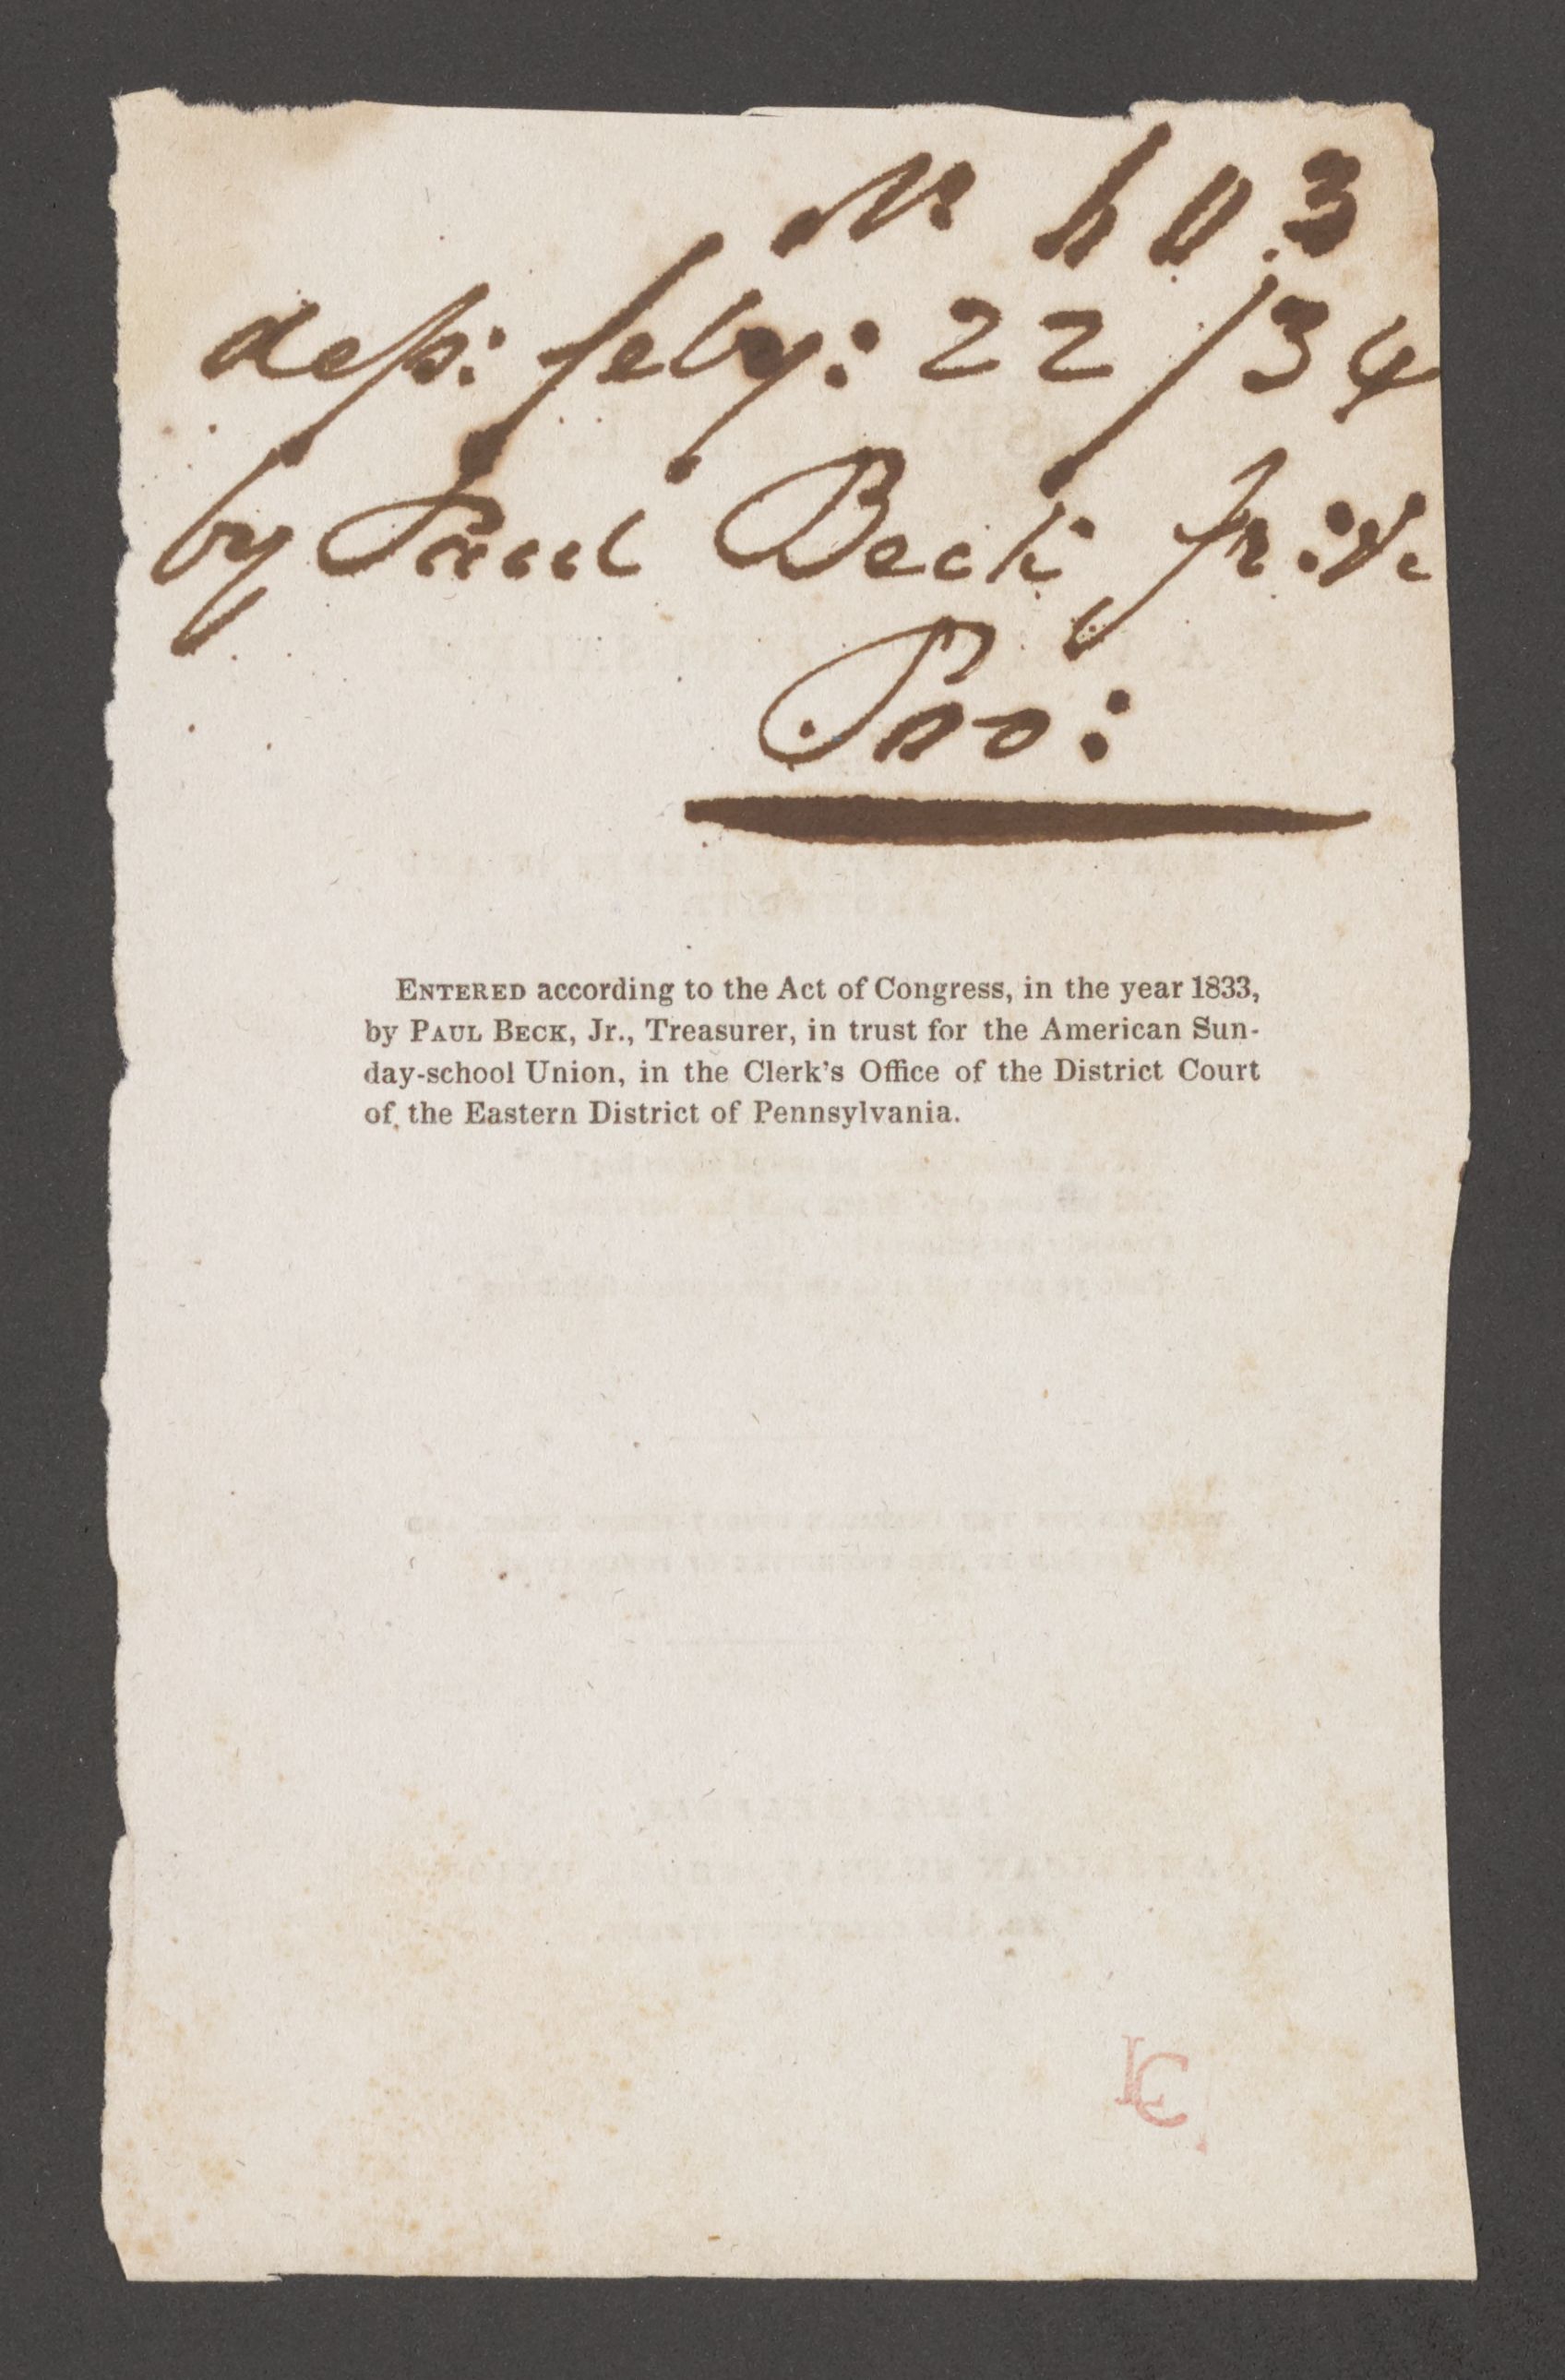 No 603
dep: feby: 22 /34
by Paul Beck Jr: &c
Pro:
ENTERED according to the Act of Congress, in the year 1833,
by PAUL BECK, Jr., Treasurer, in trust for the American Sun-
day-school Union, in the Clerk's Office of the District Court
of the Eastern District of Pennsylvania.
LC